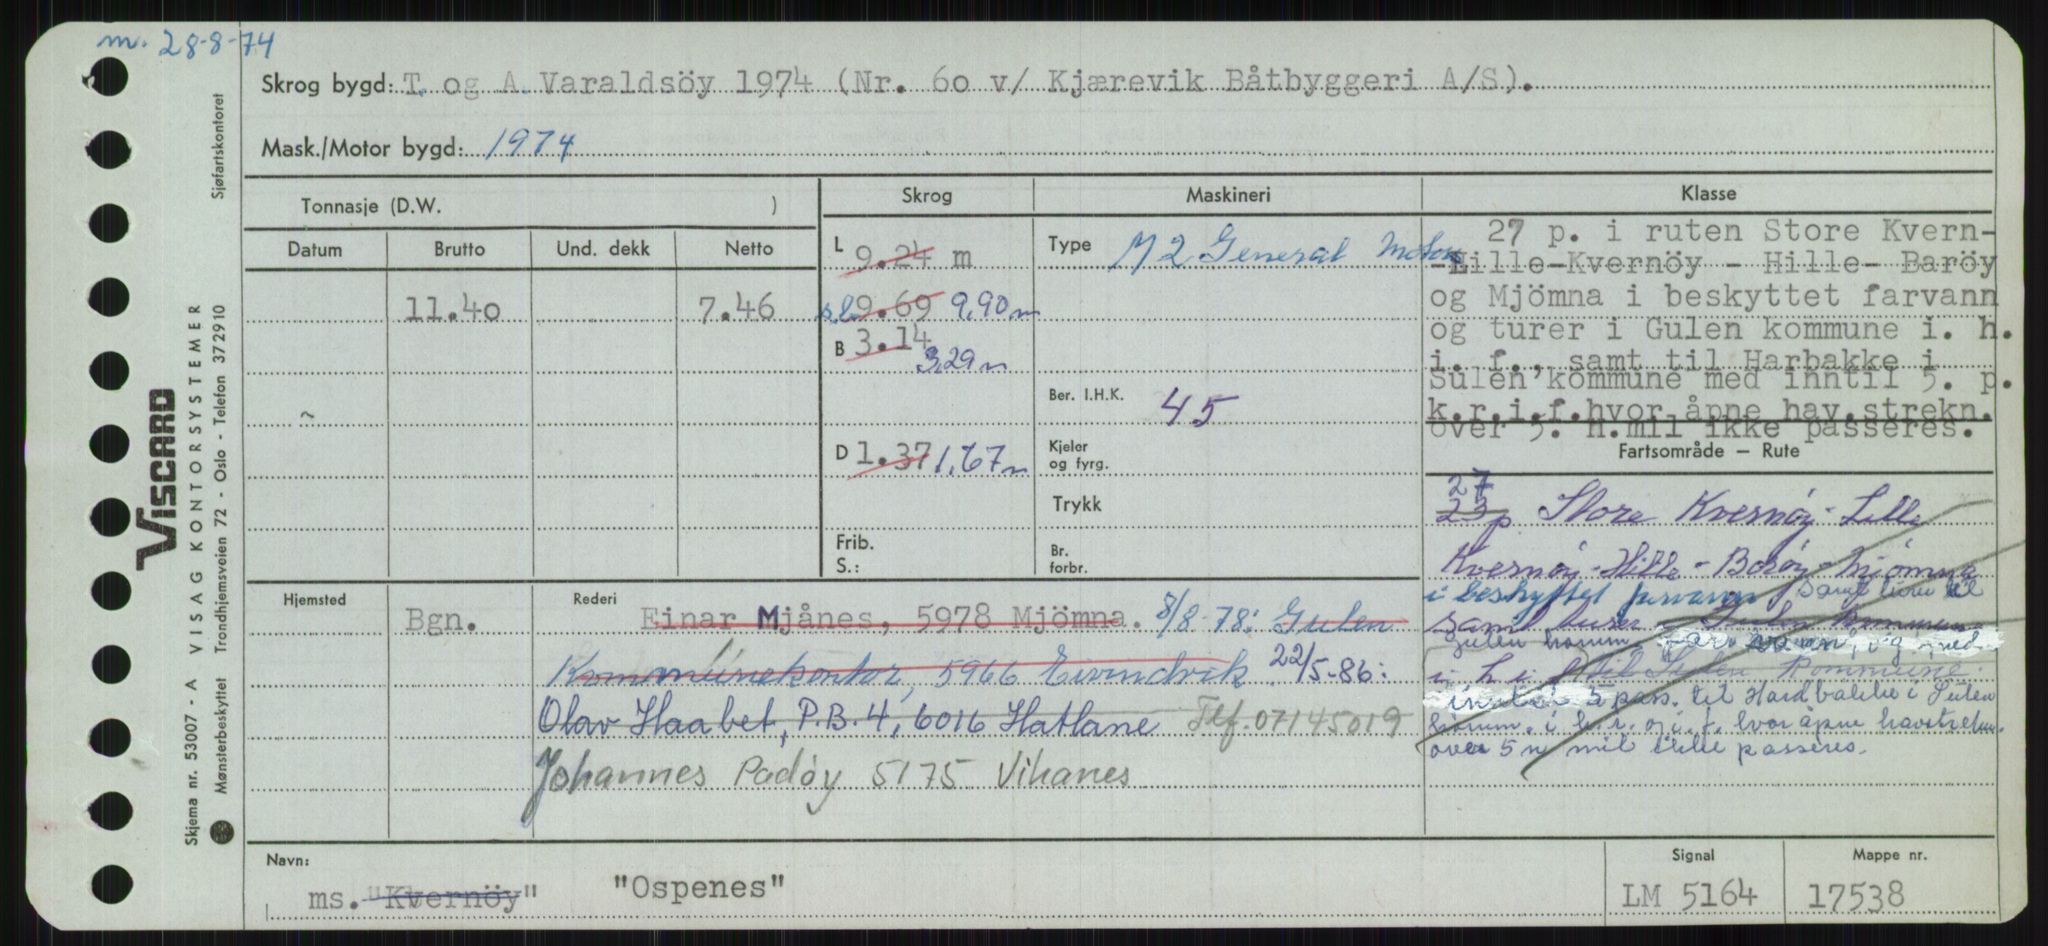 m. 28-8-74
Skrog bygd: T. og A. Varaldsöy 1974 (Nr. 60 v/ Kjærevik Båtbyggeri A/S).
Mask./Motor bygd: 1974
Tonnasje (D.W. )
Skrog
Maskineri
Klasse
Datum
Brutto
Und. dekk
Netto
11.40
7.46
L 9.24 m
9.69 9,90 m
B 3.14
3,29 m
D 1.37 1,67 m
Frib.
S.:
Type M2 General Motor
Ber. I.H.K. 45
Kjeler
og fyrg.
Trykk
Br.
forbr.
27 p. i ruten Store Kvern-
-Lille-Kvernöy - Hille- Baröy
og Mjömna i beskyttet farvann
og turer i Gulen kommune i. h.
i. f., samt til Harbakke i
Sulen kommune med inntil 5. p.
k.r.i.f.hvor åpne hav.strekn.
over 5. n.mil ikke passeres.
Fartsområde – Rute
27
23 p Store Kvernöy - Lille
Kvernöy - Hille - Boröy - Mjömna
i beskyttet farvann, samt turer til
samt turer i Gulen kommune
i h i f til Sulen kommune.
5 pass. til Hardbakke i Sulen
i h.r. og i. f. hvor åpne havstrekn.
over 5 n mil ikke passeres.
Hjemsted
Bgn.
Rederi
Einar Mjånes, 5978 Mjömna. 8/8-78: Gulen
Kommunekontor, 5966 Eivindvik 22/5-86:
Olav Haabet, P.B. 4, 6016 Hatlane Tlf. 07145019
Johannes Padöy 5175 Vihanes
Navn:
ms. "Kvernöy" "Ospenes"
Signal
LM 5164
Mappe nr.
17538
VISCARD
Skjema nr. 53007 - A VISAG KONTORSYSTEMER Sjøfartskontoret
Mønsterbeskyttet Trondhjemsveien 72 - Oslo - Telefon 372910